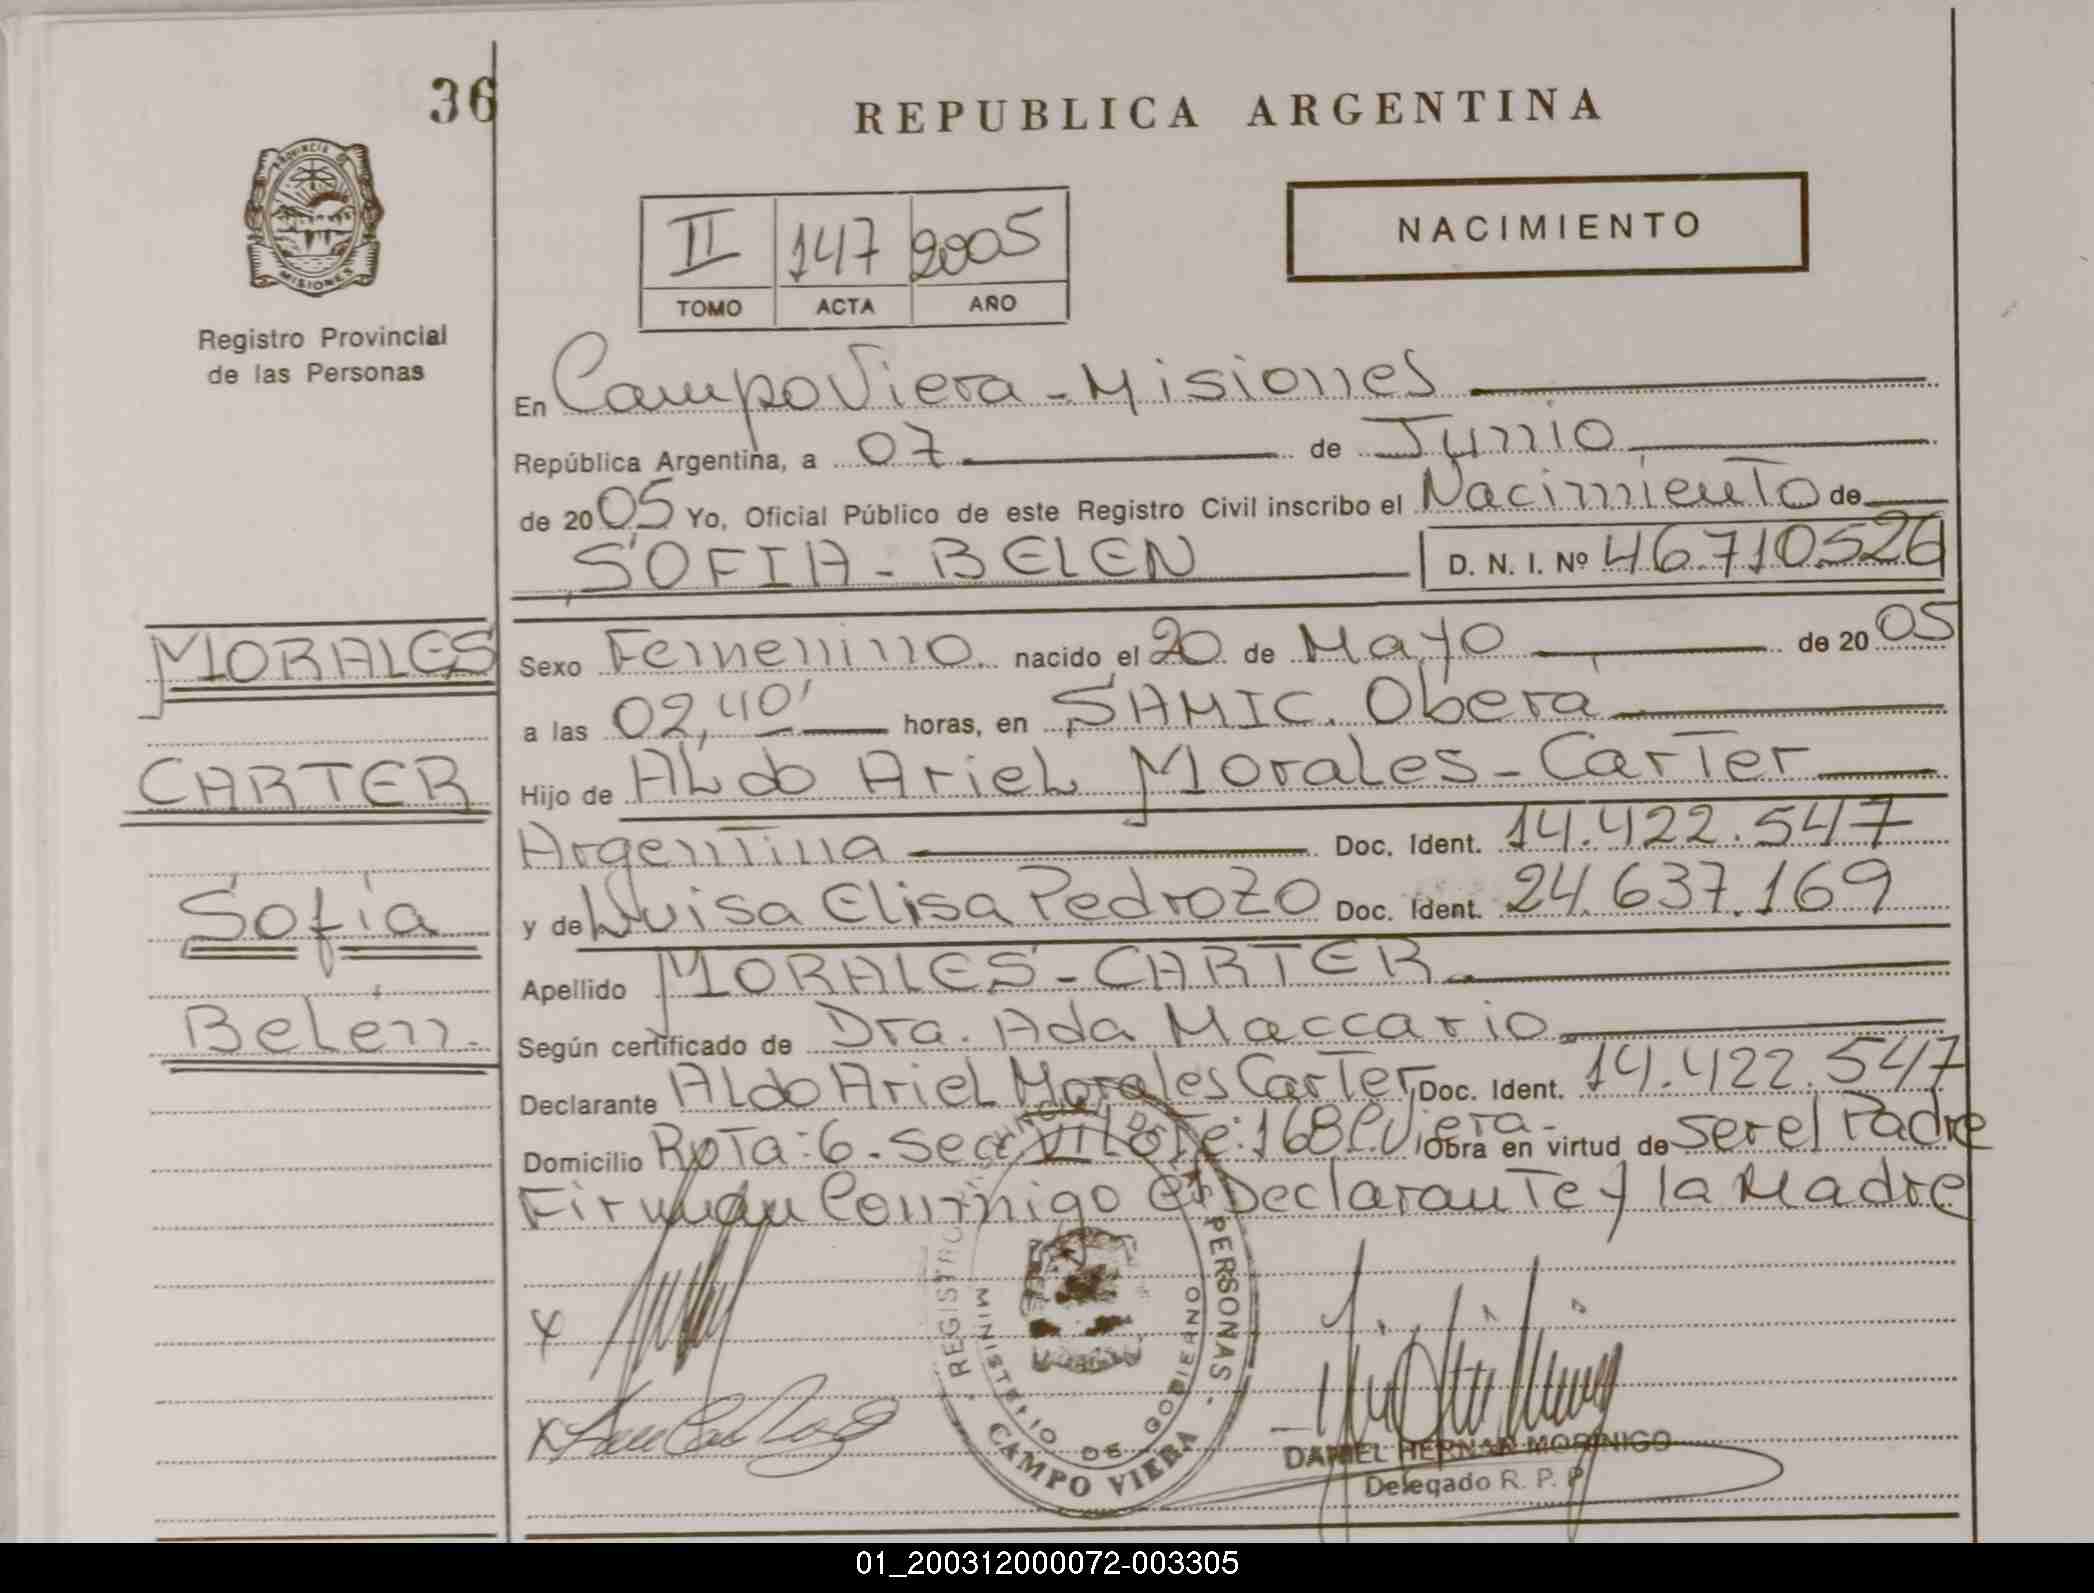 36
REPUBLICA ARGENTINA
PROVINCIA DE
MISIONES
NACIMIENTO
II 147 2005
TOMO ACTA AÑO
Registro Provincial
de las Personas
En Campo Viera - Misiones
República Argentina, a 07 de Junio
de 2005 Yo, Oficial Público de este Registro Civil inscribo el Nacimiento de
SOFIA - BELEN D. N. I. Nº 46.710.526
MORALES
CARTER
Sofía
Belen
Sexo Femenino nacido el 20 de Mayo de 2005
a las 02,40' horas, en SAMIC. Oberá
Hijo de Aldo Ariel Morales - Carter
Argentina Doc. Ident. 14.422.547
y de Luisa Elisa Pedrozo Doc. Ident. 24.637.169
Apellido MORALES - CARTER
Según certificado de Dra. Ada Maccario
Declarante Aldo Ariel Morales Carter Doc. Ident. 14.422.547
Domicilio Rota: 6. Secc. VI Lote: 168 C. Viera - Obra en virtud de ser el Padre
Firman Conmigo el Declarante y la Madre
REGISTRO PERSONAS
MINISTERIO DE GOBIERNO
CAMPO VIERA
x
x
DANIEL HERNAN MORINIGO
Delegado R. P. P
01_200312000072-003305